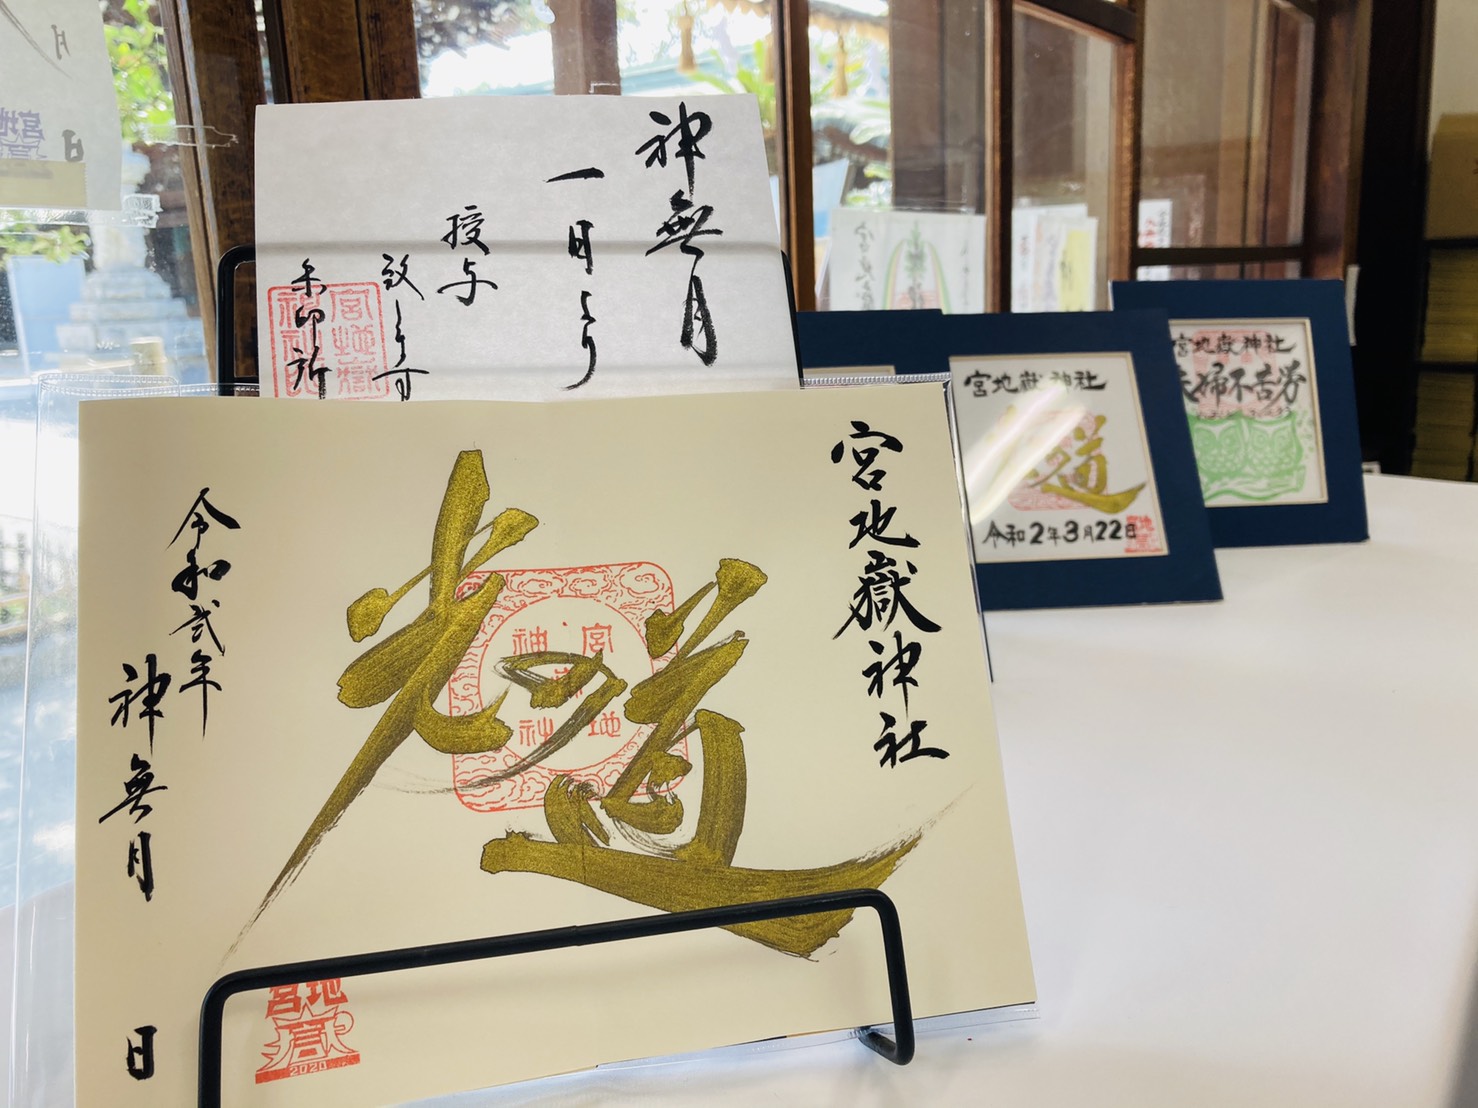 神無月
一日より
授与
致します
朱印所
宮地嶽神社
光の道
宮地嶽神社
令和弐年
神無月
日
宮地嶽
2020
宮地嶽神社
道
令和2年3月22日
宮地嶽神社
夫婦不苦労